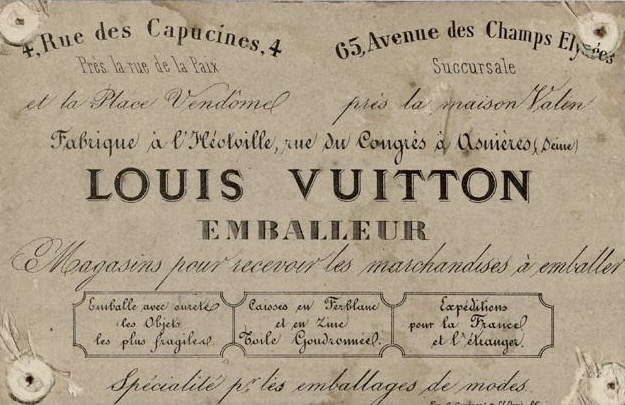 4, Rue des Capucines, 4
65, Avenue des Champs Elysées
Près la rue de la Paix
Succursale
et la Place Vendôme
près la maison Valen
Fabrique à l'Héotville, rue du Congrès à Asnières (Seine)
LOUIS VUITTON
EMBALLEUR
Magasins pour recevoir les marchandises à emballer
Emballe avec sureté
les Objets
les plus fragiles.
Caisses en Ferblanc
et en Zinc
Toile Goudronnée.
Expéditions
pour la France
et l'étranger.
Spécialité pr. les emballages de modes.